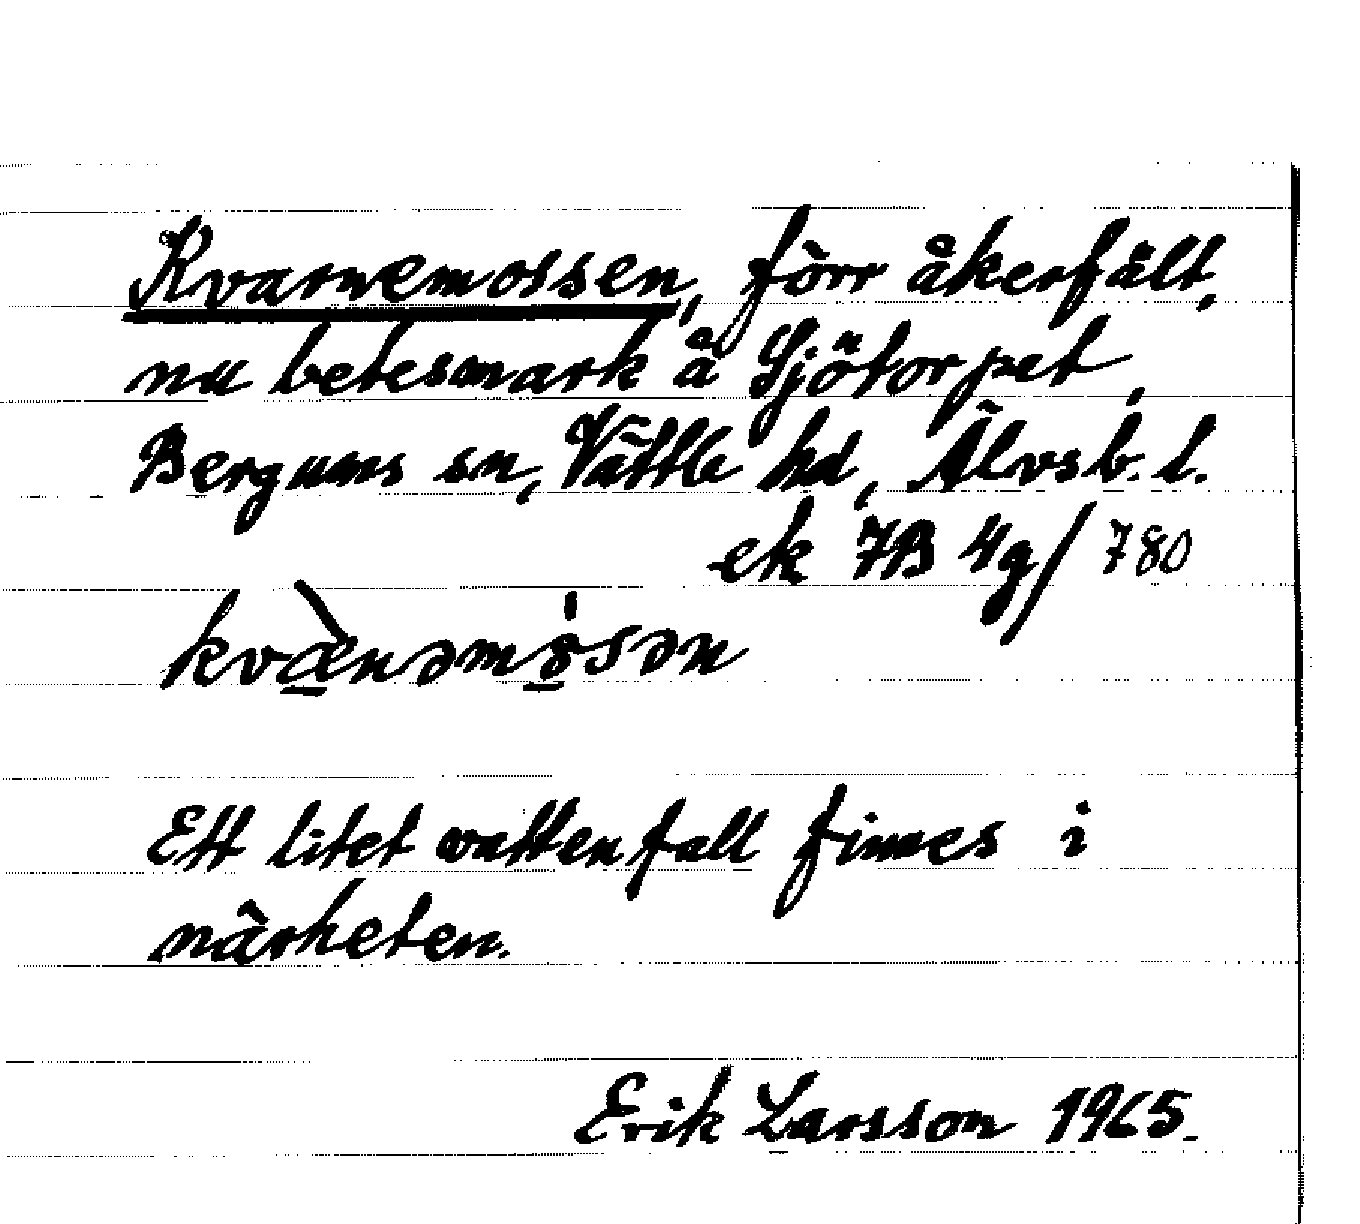 Kvarnemossen, förr åkerfält,
nu betesmark å Sjötorpet,
Bergums sn, Vättle hd, Älvsb. l.
ek 7B 4g/780
kvæ̀nəmȯsən
Ett litet vattenfall finnes i
närheten.
Erik Larsson 1965.